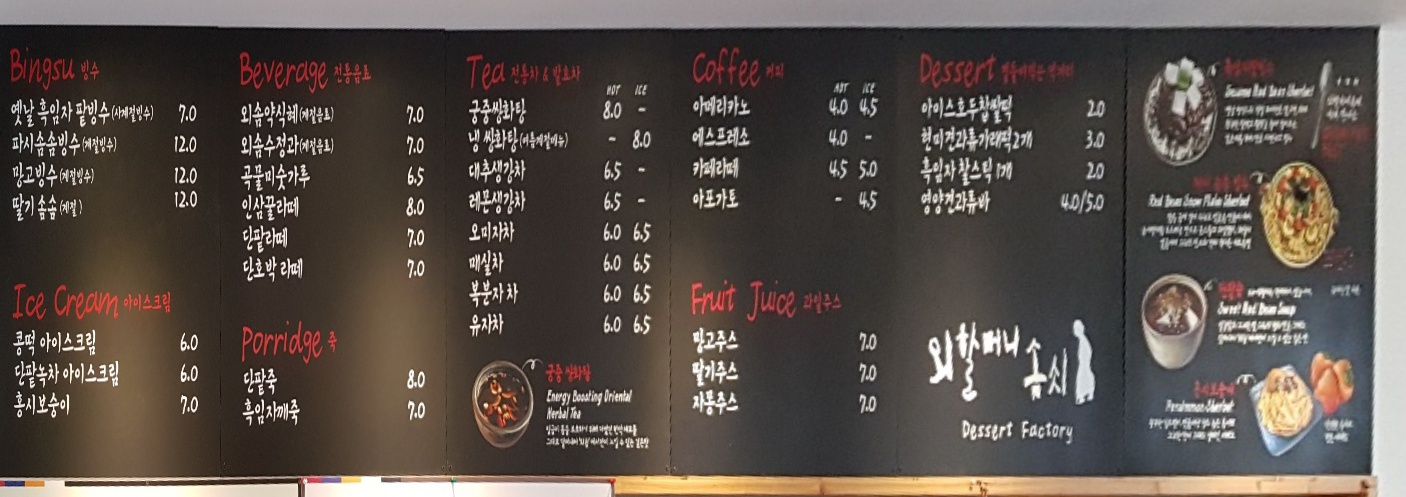 Bingsu 빙수
옛날 흑임자 팥빙수 (사계절빙수) 7.0
파시솜솜빙수 (계절빙수) 12.0
망고빙수 (계절빙수) 12.0
딸기솜솜 (계절) 12.0
Ice Cream 아이스크림
콩떡 아이스크림 6.0
단팥녹차 아이스크림 6.0
홍시보숭이 7.0
Beverage 전통음료
외솜약식혜 (계절음료) 7.0
외솜수정과 (계절음료) 7.0
곡물미숫가루 6.5
인삼꿀라떼 8.0
단팥라떼 7.0
단호박 라떼 7.0
Porridge 죽
단팥죽 8.0
흑임자깨죽 7.0
Tea 전통차 & 발효차
HOT ICE
궁중쌍화탕 8.0 -
냉 쌍화탕 (여름계절메뉴) - 8.0
대추생강차 6.5 -
레몬생강차 6.5 -
오미자차 6.0 6.5
매실차 6.0 6.5
복분자차 6.0 6.5
유자차 6.0 6.5
궁중 쌍화탕
Energy Boosting Oriental
Herbal Tea
Coffee 커피
HOT ICE
아메리카노 4.0 4.5
에스프레소 4.0 -
카페라떼 4.5 5.0
아포가토 - 4.5
Fruit Juice 과일주스
망고주스 7.0
딸기주스 7.0
자몽주스 7.0
Dessert
아이스호두찹쌀떡 2.0
현미견과류가래떡2개 3.0
흑임자 찰스틱 1개 2.0
영양견과류바 4.0/5.0
외할머니 솜씨
Dessert Factory
Sesame Red Bean Sherbet
Red Bean Snow Flake Sherbet
단팥죽
Sweet Red Bean Soup
홍시보숭이
Persimmon Sherbet